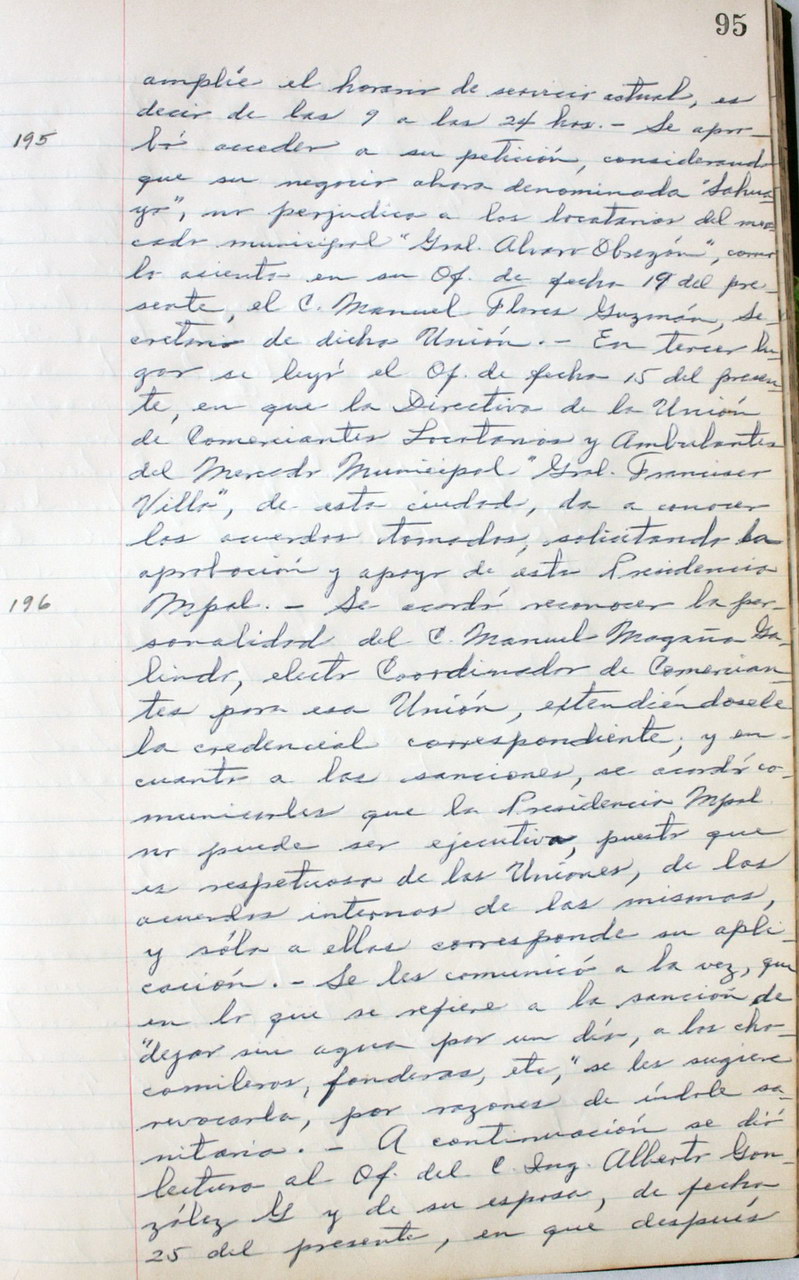 95
amplíe el horario de servicio actual, es
decir de las 9 a las 24 hrs. - Se apro-
195
bó acceder a su petición, considerando
que su negocio ahora denominada "Sahua-
yo", no perjudica a los locatarios del mer-
cado municipal "Gral. Alvaro Obregón", como
lo asienta en su Of. de fecha 19 del pre-
sente, el C. Manuel Flores Guzmán, Se-
cretario de dicha Unión. - En tercer lu-
gar se leyó el Of. de fecha 15 del presen-
te, en que la Directiva de la Unión
de Comerciantes Locatarios y Ambulantes
del Mercado Municipal "Gral. Francisco
Villa", de esta ciudad, da a conocer
los acuerdos tomados, solicitando la
aprobación y apoyo de ésta Presidencia
196
Mpal. - Se acordó reconocer la per-
sonalidad del C. Manuel Magaña Ga-
lindo, electo Coordinador de Comercian-
tes para esa Unión, extendiéndosele
la credencial correspondiente; y en
cuanto a las sanciones, se acordó co-
municarles que la Presidencia Mpal.
no puede ser ejecutiva, puesto que
es respetuosa de las Uniones, de los
acuerdos internos de las mismas,
y sólo a ellas corresponde su apli-
cación. - Se les comunicó a la vez, que
en lo que se refiere a la sanción de
"dejar sin agua por un día, a los cho-
comileros, fonderas, etc," se les sugiere
revocarla, por razones de índole sa-
nitaria. - A continuación se dió
lectura al Of. del C. Ing. Alberto Gon-
zález G y de su esposa, de fecha
25 del presente, en que después